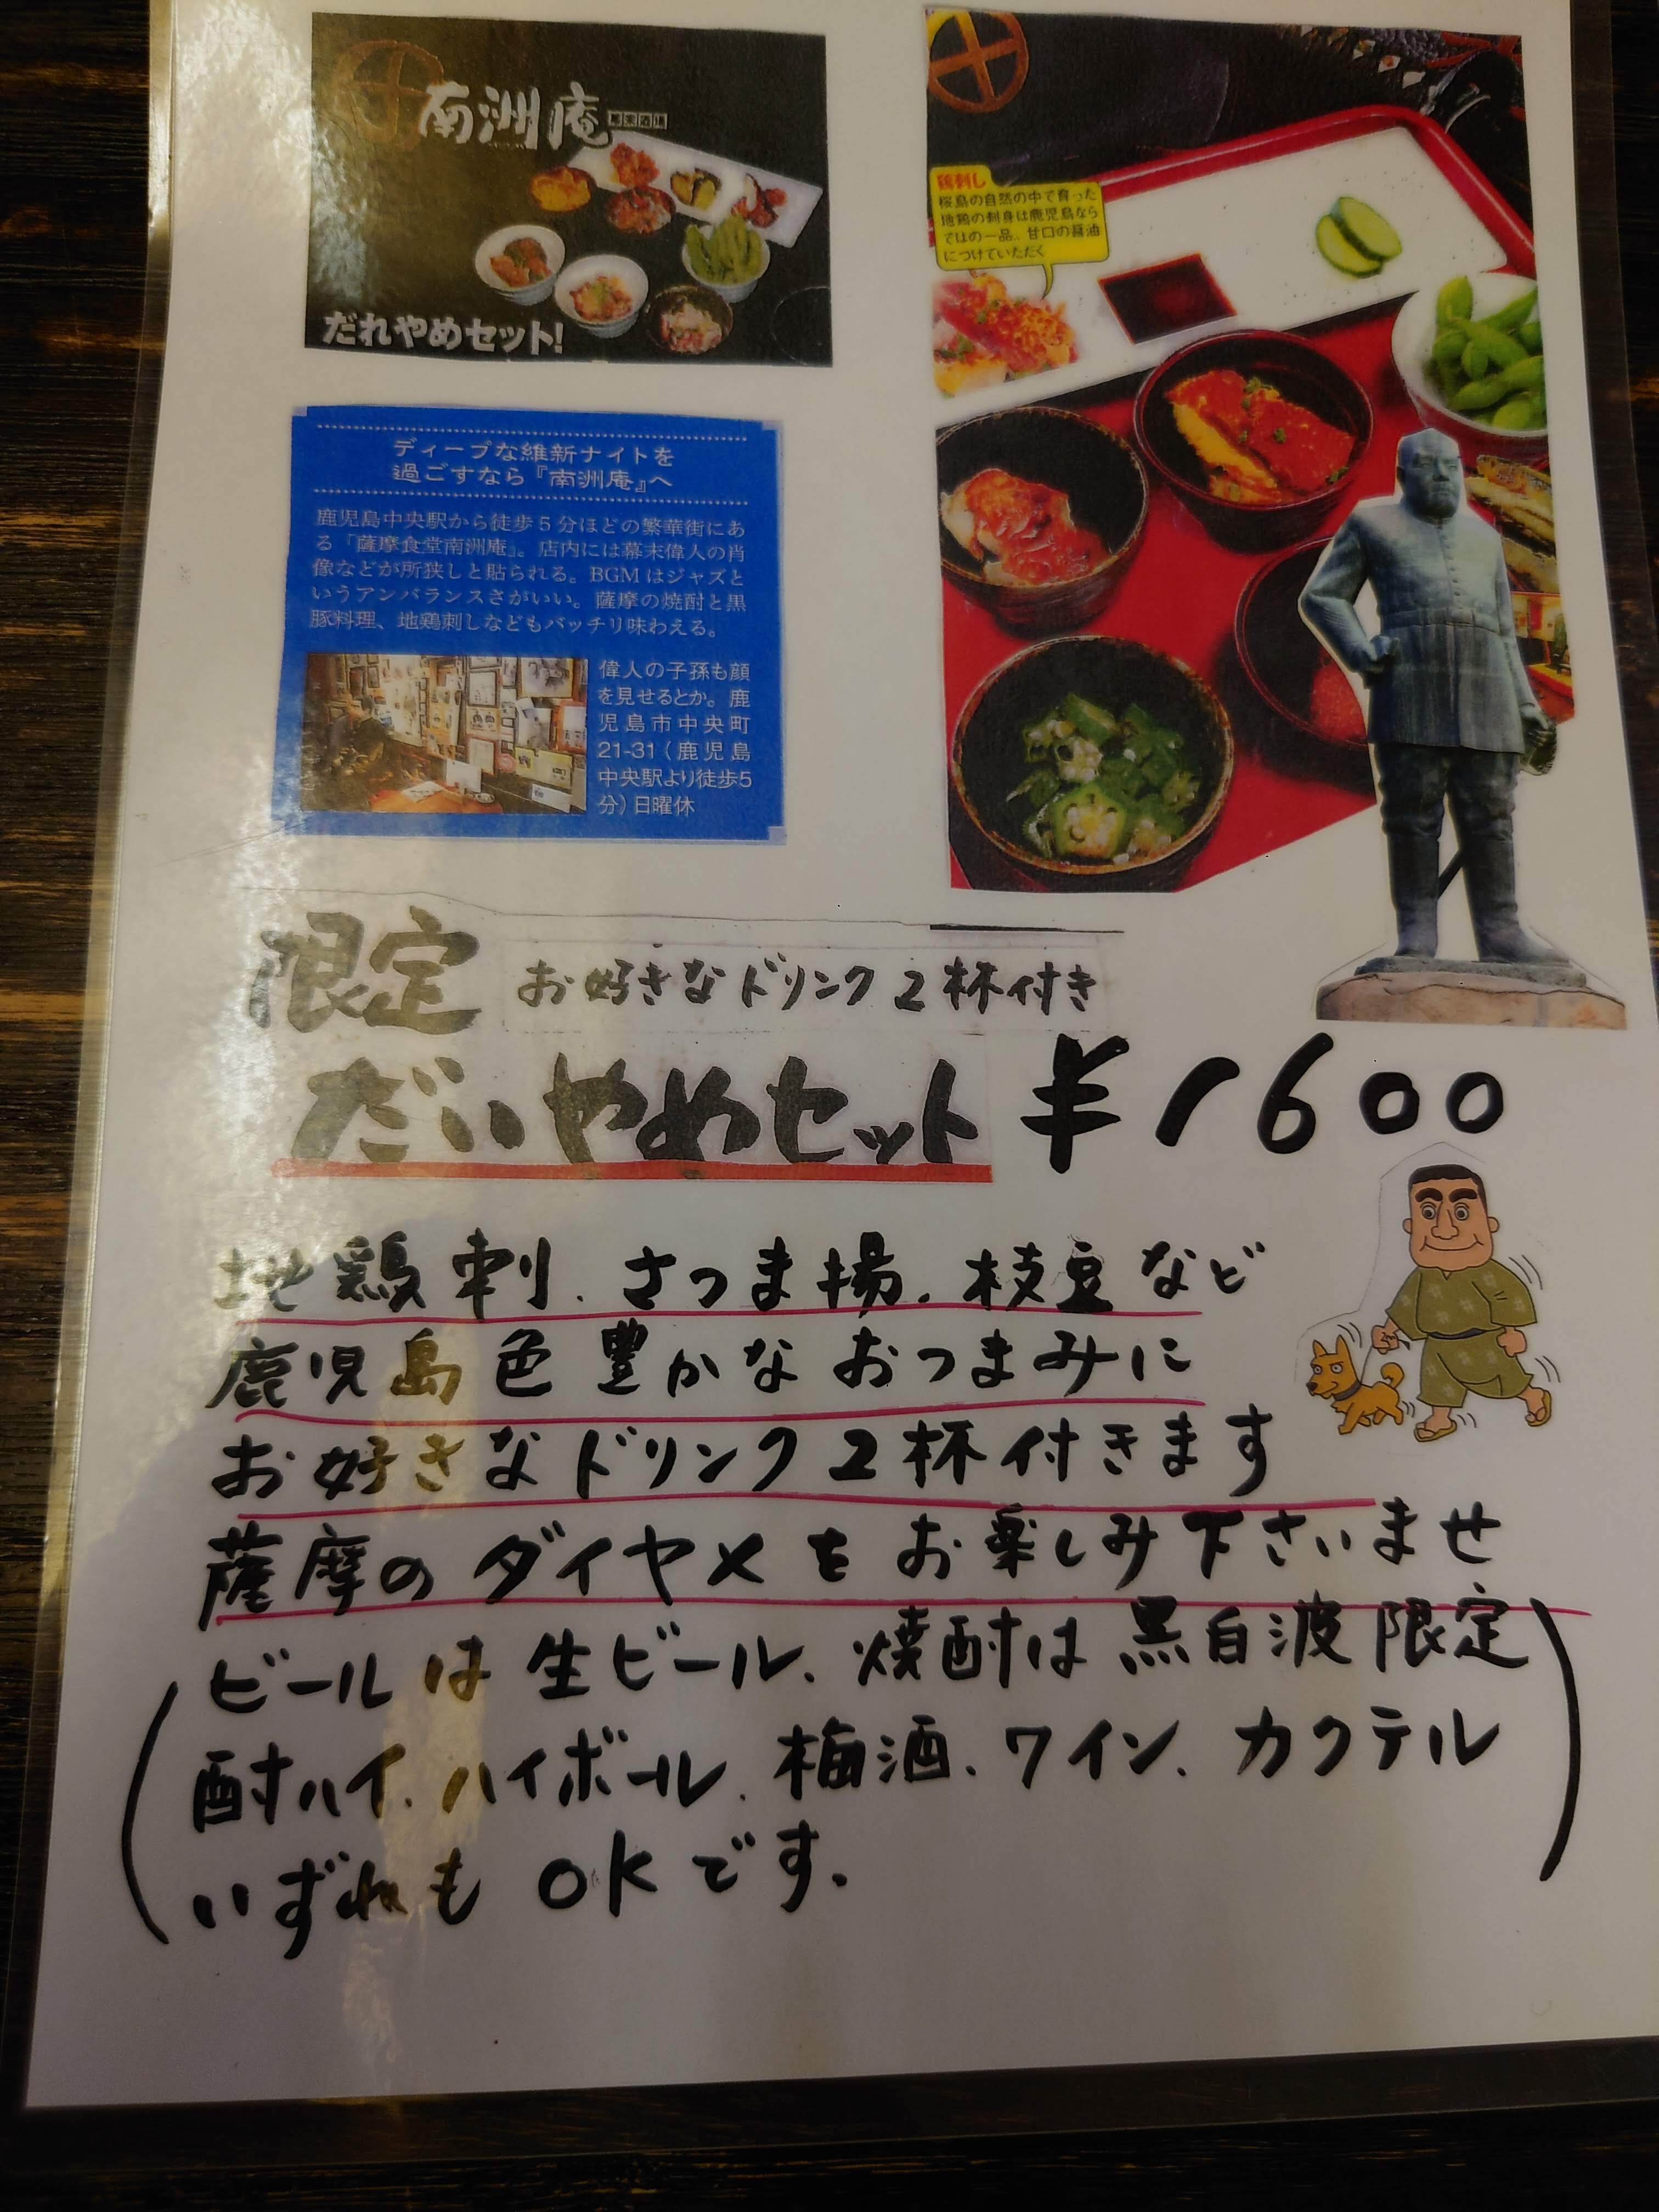 南洲庵
だれやめセット!
鶏刺し
桜島の自然の中で育った
地鶏の刺身は鹿児島なら
ではの一品。甘口の醤油
につけていただく
ディープな維新ナイトを
過ごすなら『南洲庵』へ
鹿児島中央駅から徒歩5分ほどの繁華街にあ
る「薩摩食堂南洲庵」。店内には幕末偉人の肖
像などが所狭しと貼られる。BGMはジャズと
いうアンバランスさがいい。薩摩の焼酎と黒
豚料理、地鶏刺しなどもバッチリ味わえる。
偉人の子孫も顔
を見せるとか。鹿
児島市中央町
21-31(鹿児島
中央駅より徒歩5
分)日曜休
限定 お好きなドリンク2杯付き
だいやめセット ¥1600
地鶏刺、さつま揚、枝豆など
鹿児島色豊かなおつまみに
お好きなドリンク2杯付きます
薩摩のダイヤメをお楽しみ下さいませ
(ビールは生ビール、焼酎は黒白波限定
酎ハイ、ハイボール、梅酒、ワイン、カクテル
いずれもOKです。)